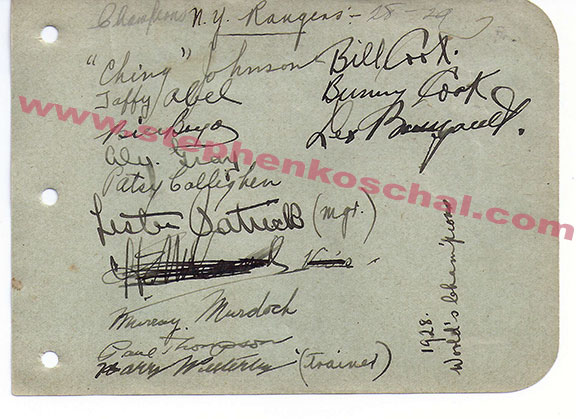 Champions N.Y. Rangers - 28 - 29
"Ching" Johnson
Taffy Abel
Bill Boyd
Alex Gray
Patsy Callighen
Lester Patrick (mgr.)
Murray Murdoch
Paul Thompson
Harry Westerby (trainer)
Bill Cook.
Bunny Cook
Leo Bourgault.
1928.
World's Champions
www.stephenkoschal.com